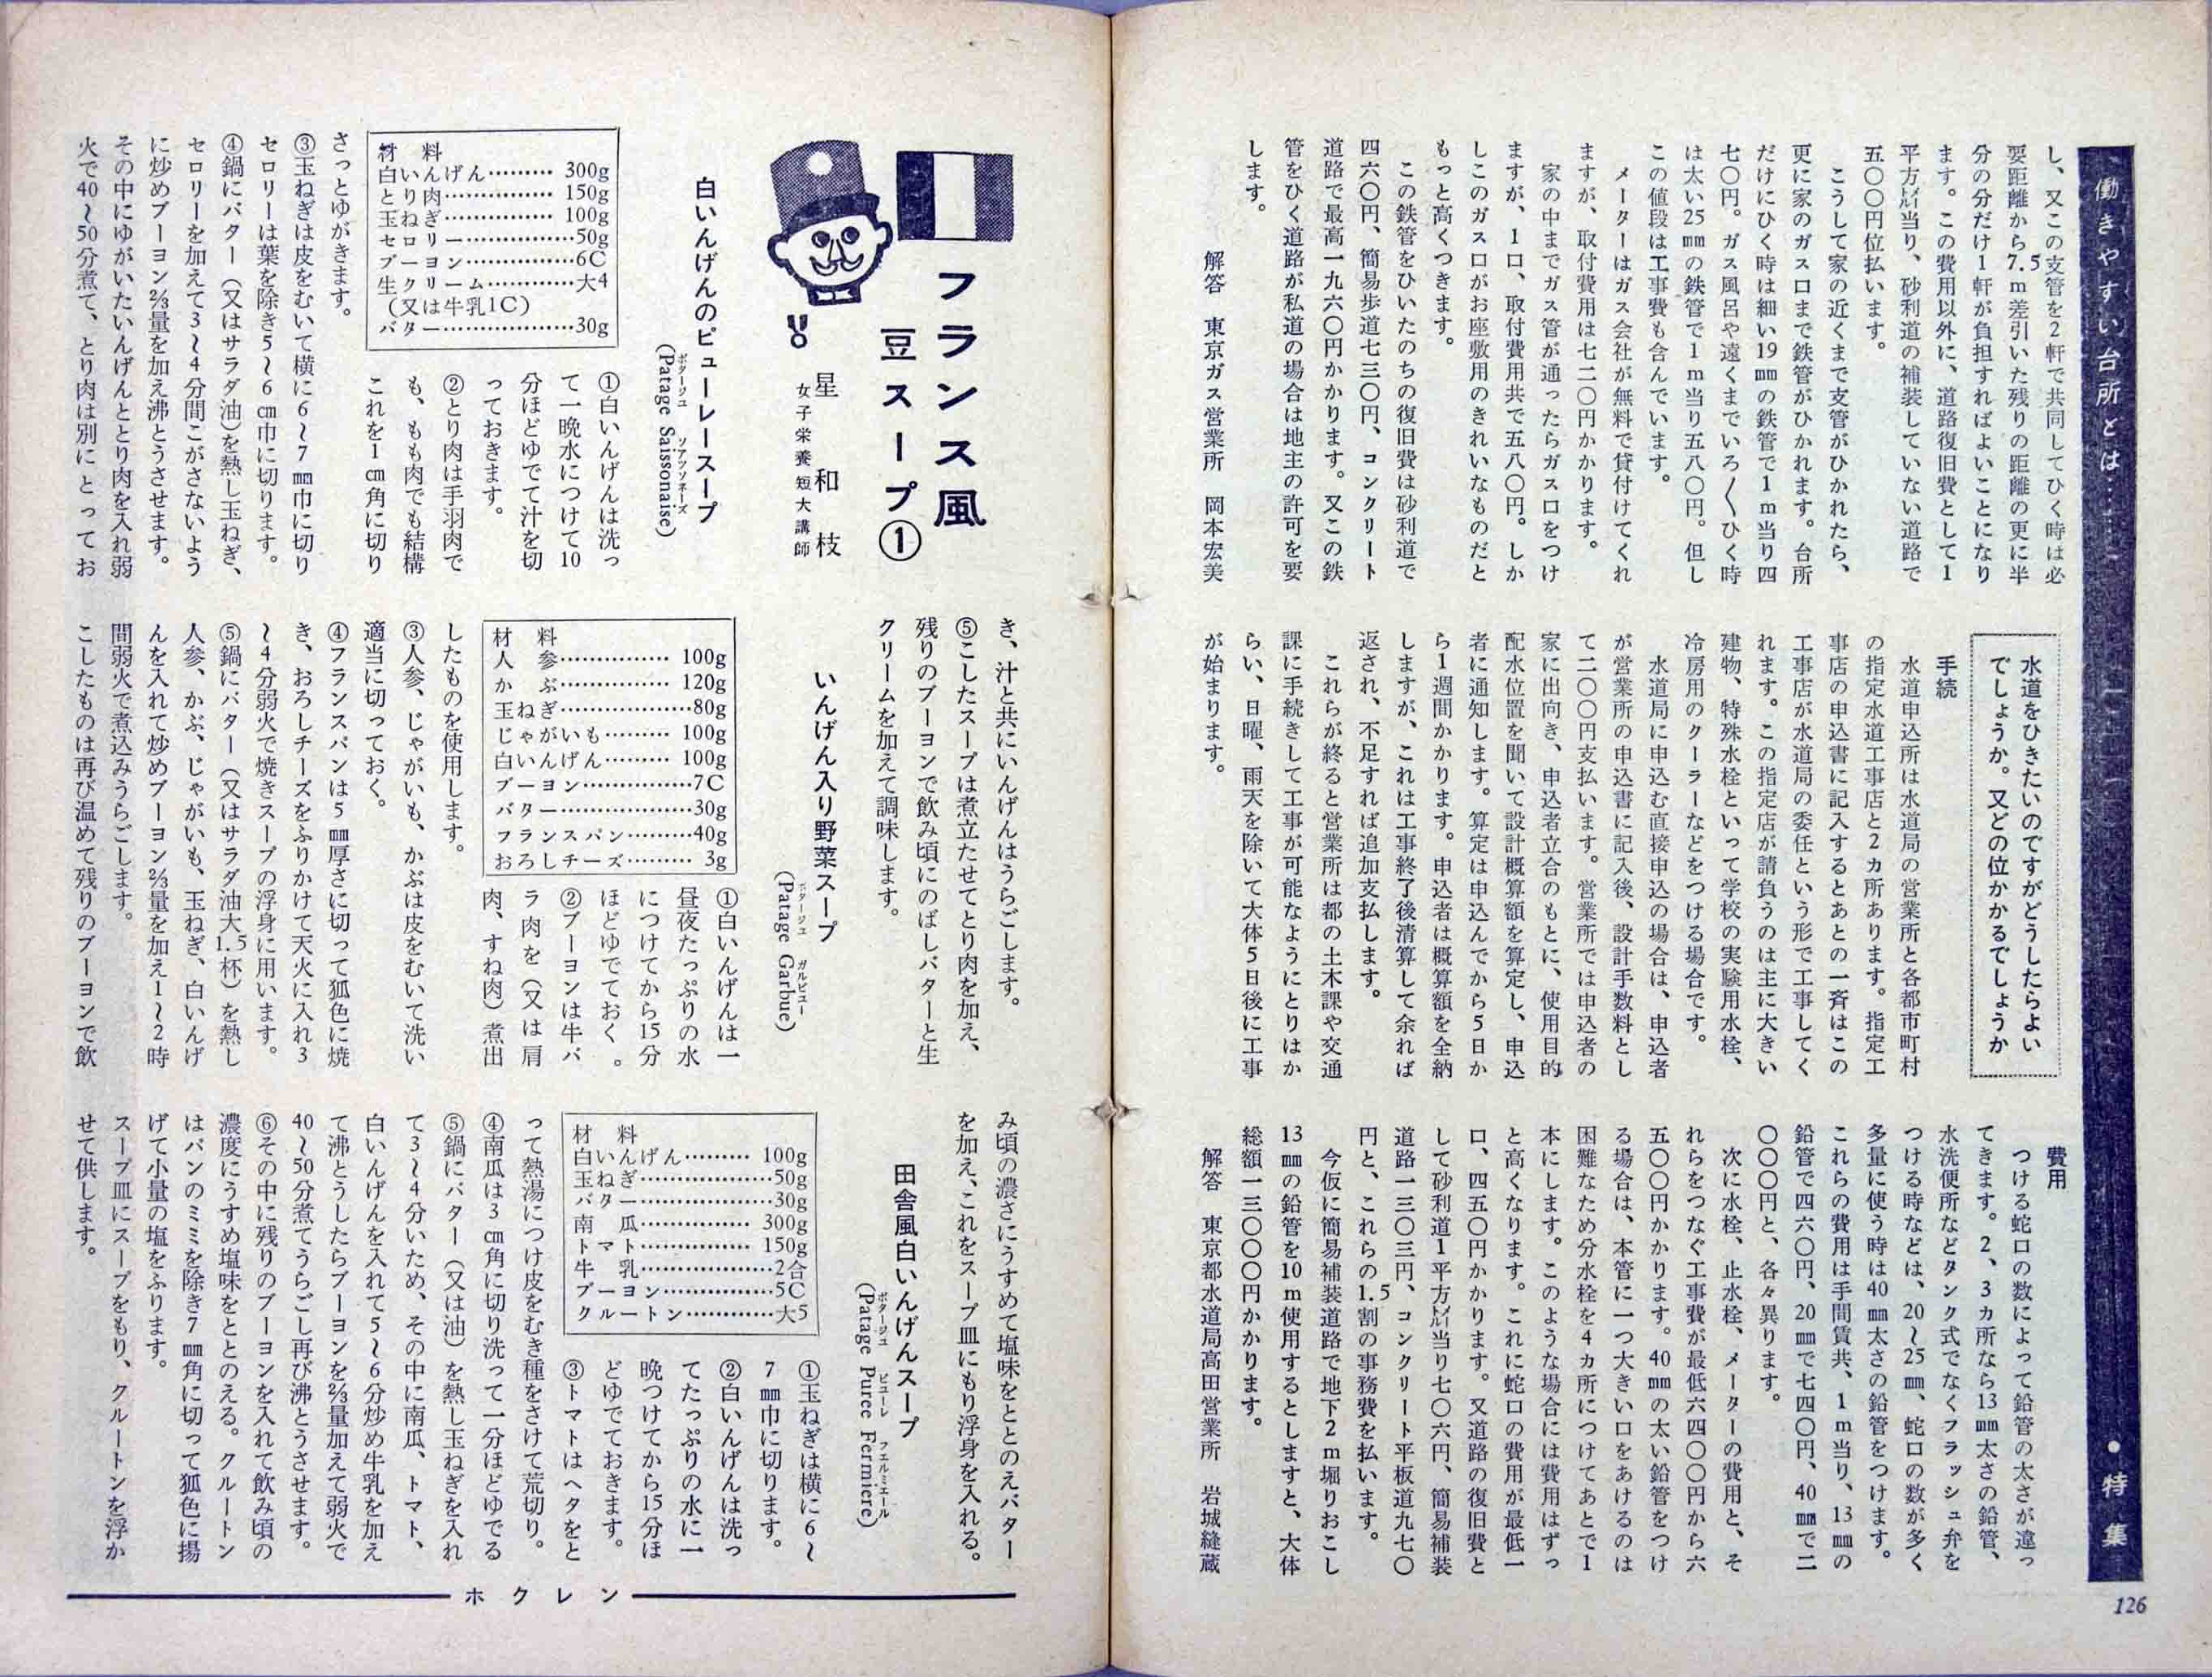 働きやすい台所とは……
●特集
126
し、又この支管を2軒で共同してひく時は必
要距離から7.5m差引いた残りの距離の更に半
分の分だけ1軒が負担すればよいことになり
ます。この費用以外に、道路復旧費として1
平方㍍当り、砂利道の補装していない道路で
五〇〇円位払います。
こうして家の近くまで支管がひかれたら、
更に家のガス口まで鉄管がひかれます。台所
だけにひく時は細い19㎜の鉄管で1m当り四
七〇円。ガス風呂や遠くまでいろ〱ひく時
は太い25㎜の鉄管で1m当り五八〇円。但し
この値段は工事費も含んでいます。
メーターはガス会社が無料で貸付けてくれ
ますが、取付費用は七二〇円かかります。
家の中までガス管が通ったらガス口をつけ
ますが、1口、取付費用共で五八〇円。しか
しこのガス口がお座敷用のきれいなものだと
もっと高くつきます。
この鉄管をひいたのちの復旧費は砂利道で
四六〇円、簡易歩道七三〇円、コンクリート
道路で最高一九六〇円かかります。又この鉄
管をひく道路が私道の場合は地主の許可を要
します。
解答 東京ガス営業所 岡本宏美
水道をひきたいのですがどうしたらよい
でしょうか。又どの位かかるでしょうか
手続
水道申込所は水道局の営業所と各都市町村
の指定水道工事店と2カ所あります。指定工
事店の申込書に記入するとあとの一斉はこの
工事店が水道局の委任という形で工事してく
れます。この指定店が請負うのは主に大きい
建物、特殊水栓といって学校の実験用水栓、
冷房用のクーラーなどをつける場合です。
水道局に申込む直接申込の場合は、申込者
が営業所の申込書に記入後、設計手数料とし
て二〇〇円支払います。営業所では申込者の
家に出向き、申込者立合のもとに、使用目的
配水位置を聞いて設計概算額を算定し、申込
者に通知します。算定は申込んでから5日か
ら1週間かかります。申込者は概算額を全納
しますが、これは工事終了後清算して余れば
返され、不足すれば追加支払します。
これらが終ると営業所は都の土木課や交通
課に手続きして工事が可能なようにとりはか
らい、日曜、雨天を除いて大体5日後に工事
が始まります。
費用
つける蛇口の数によって鉛管の太さが違っ
てきます。2、3カ所なら13㎜太さの鉛管、
水洗便所などタンク式でなくフラッシュ弁を
つける時などは、20～25㎜、蛇口の数が多く
多量に使う時は40㎜太さの鉛管をつけます。
これらの費用は手間賃共、1m当り、13㎜の
鉛管で四六〇円、20㎜で七四〇円、40㎜で二
〇〇〇円と、各々異ります。
次に水栓、止水栓、メーターの費用と、そ
れらをつなぐ工事費が最低六四〇〇円から六
五〇〇円かかります。40㎜の太い鉛管をつけ
る場合は、本管に一つ大きい口をあけるのは
困難なため分水栓を4カ所につけてあとで1
本にします。このような場合には費用はずっ
と高くなります。これに蛇口の費用が最低一
口、四五〇円かかります。又道路の復旧費と
して砂利道1平方㍍当り七〇六円、簡易補装
道路一三〇三円、コンクリート平板道九七〇
円と、これらの1.5割の事務費を払います。
今仮に簡易補装道路で地下2m堀りおこし
13㎜の鉛管を10m使用するとしますと、大体
総額一三〇〇〇円かかります。
解答 東京都水道局高田営業所 岩城縫蔵
フランス風
豆スープ①
星 和枝
女子栄養短大講師
白いんげんのピューレースープ
(Patage Saissonaise)
ポタージュ ソアソネーズ
材 料
白いんげん……… 300g
とり肉…………… 150g
玉ねぎ…………… 100g
セロリー……………50g
ブーヨン……………6C
生クリーム…………大4
(又は牛乳1C)
バター………………30g
①白いんげんは洗っ
て一晩水につけて10
分ほどゆでて汁を切
っておきます。
②とり肉は手羽肉で
も、もも肉でも結構
これを1㎝角に切り
さっとゆがきます。
③玉ねぎは皮をむいて横に6～7㎜巾に切り
セロリーは葉を除き5～6㎝巾に切ります。
④鍋にバター(又はサラダ油)を熱し玉ねぎ、
セロリーを加えて3～4分間こがさないよう
に炒めブーヨン⅔量を加え沸とうさせます。
その中にゆがいたいんげんととり肉を入れ弱
火で40～50分煮て、とり肉は別にとってお
き、汁と共にいんげんはうらごします。
⑤こしたスープは煮立たせてとり肉を加え、
残りのブーヨンで飲み頃にのばしバターと生
クリームを加えて調味します。
いんげん入り野菜スープ
(Patage Garbue)
ポタージュ ガルビュー
材 料
人 参…………… 100g
か ぶ…………… 120g
玉ねぎ………………80g
じゃがいも……… 100g
白いんげん……… 100g
ブーヨン……………7C
バター………………30g
フランスパン………40g
おろしチーズ……… 3g
①白いんげんは一
昼夜たっぷりの水
につけてから15分
ほどゆでておく。
②ブーヨンは牛バ
ラ肉を(又は肩
肉、すね肉)煮出
したものを使用します。
③人参、じゃがいも、かぶは皮をむいて洗い
適当に切っておく。
④フランスパンは5㎜厚さに切って狐色に焼
き、おろしチーズをふりかけて天火に入れ3
～4分弱火で焼きスープの浮身に用います。
⑤鍋にバター(又はサラダ油大1.5杯)を熱し
人参、かぶ、じゃがいも、玉ねぎ、白いんげ
んを入れて炒めブーヨン⅔量を加え1～2時
間弱火で煮込みうらごします。
こしたものは再び温めて残りのブーヨンで飲
み頃の濃さにうすめて塩味をととのえバター
を加え、これをスープ皿にもり浮身を入れる。
田舎風白いんげんスープ
(Patage Puree Fermiere)
ポタージュ ピューレ フェルミエール
材 料
白いんげん……… 100g
玉ねぎ………………50g
バター………………30g
南 瓜…………… 300g
トマト…………… 150g
牛 乳………………2合
ブーヨン……………5C
クルートン…………大5
①玉ねぎは横に6～
7㎜巾に切ります。
②白いんげんは洗っ
てたっぷりの水に一
晩つけてから15分ほ
どゆでておきます。
③トマトはヘタをと
って熱湯につけ皮をむき種をさけて荒切り。
④南瓜は3㎝角に切り洗って一分ほどゆでる
⑤鍋にバター(又は油)を熱し玉ねぎを入れ
て3～4分いため、その中に南瓜、トマト、
白いんげんを入れて5～6分炒め牛乳を加え
て沸とうしたらブーヨンを⅔量加えて弱火で
40～50分煮てうらごし再び沸とうさせます。
⑥その中に残りのブーヨンを入れて飲み頃の
濃度にうすめ塩味をととのえる。クルートン
はパンのミミを除き7㎜角に切って狐色に揚
げて小量の塩をふります。
スープ皿にスープをもり、クルートンを浮か
せて供します。
ホクレン